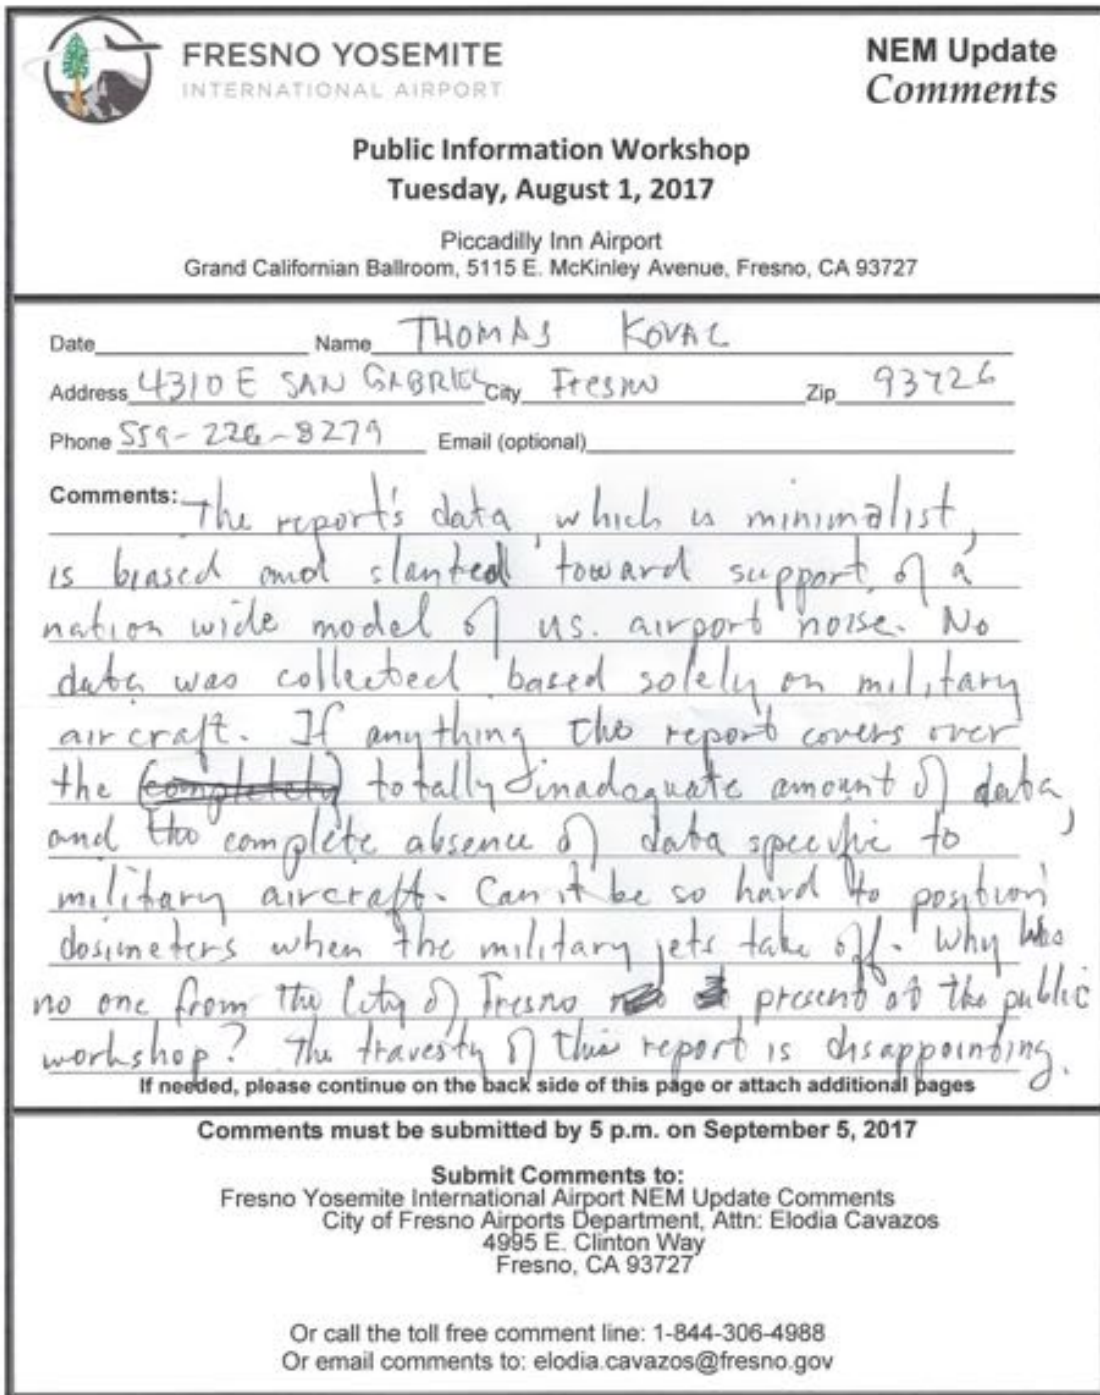 FRESNO YOSEMITE
INTERNATIONAL AIRPORT
NEM Update
Comments
Public Information Workshop
Tuesday, August 1, 2017
Piccadilly Inn Airport
Grand Californian Ballroom, 5115 E. McKinley Avenue, Fresno, CA 93727
Date Name THOMAS KOVAC
Address 4310 E SAN GABRIEL City Fresno Zip 93726
Phone 559-226-8279 Email (optional)
Comments: The report's data, which is minimalist,
is biased and slanted toward support of a
nation wide model of us. airport noise. No
data was collected based solely on military
aircraft. If anything the report covers over
the (completely) totally inadequate amount of data,
and the complete absence of data specific to
military aircraft. Can it be so hard to position
dosimeters when the military jets take off. Why was
no one from the City of Fresno present at the public
workshop? The travesty of this report is disappointing.
If needed, please continue on the back side of this page or attach additional pages
Comments must be submitted by 5 p.m. on September 5, 2017
Submit Comments to:
Fresno Yosemite International Airport NEM Update Comments
City of Fresno Airports Department, Attn: Elodia Cavazos
4995 E. Clinton Way
Fresno, CA 93727
Or call the toll free comment line: 1-844-306-4988
Or email comments to: elodia.cavazos@fresno.gov